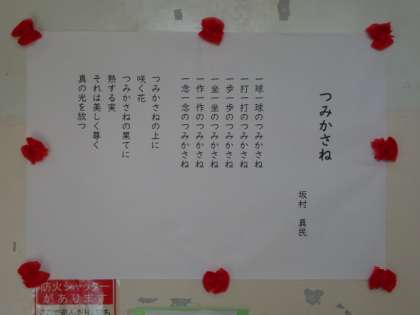 つみかさね
坂村　真民
一球一球のつみかさね
一打一打のつみかさね
一歩一歩のつみかさね
一坐一坐のつみかさね
一作一作のつみかさね
一念一念のつみかさね
つみかさねの上に
咲く花
つみかさねの果てに
熟する実
それは美しく尊く
真の光を放つ
防火シャッター
があります